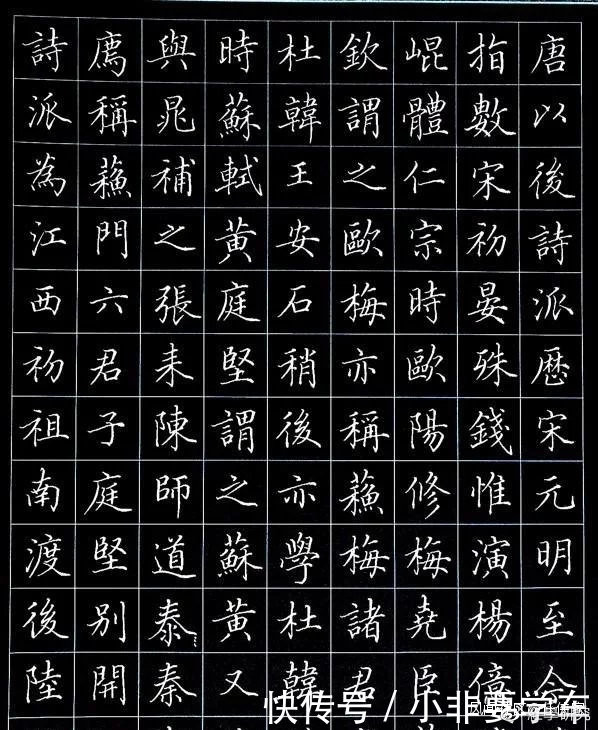 唐以後詩派歷宋元明至今
指數宋初晏殊錢惟演楊億
崐體仁宗時歐陽修梅堯臣
欽謂之歐梅亦稱蘓梅諸君
杜韓王安石稍後亦學杜韓
時蘇軾黃庭堅謂之蘇黃又
與晁補之張耒陳師道泰秦
廌稱蘓門六君子庭堅別開
詩派為江西初祖南渡後陸
快传号 / 小非要学布